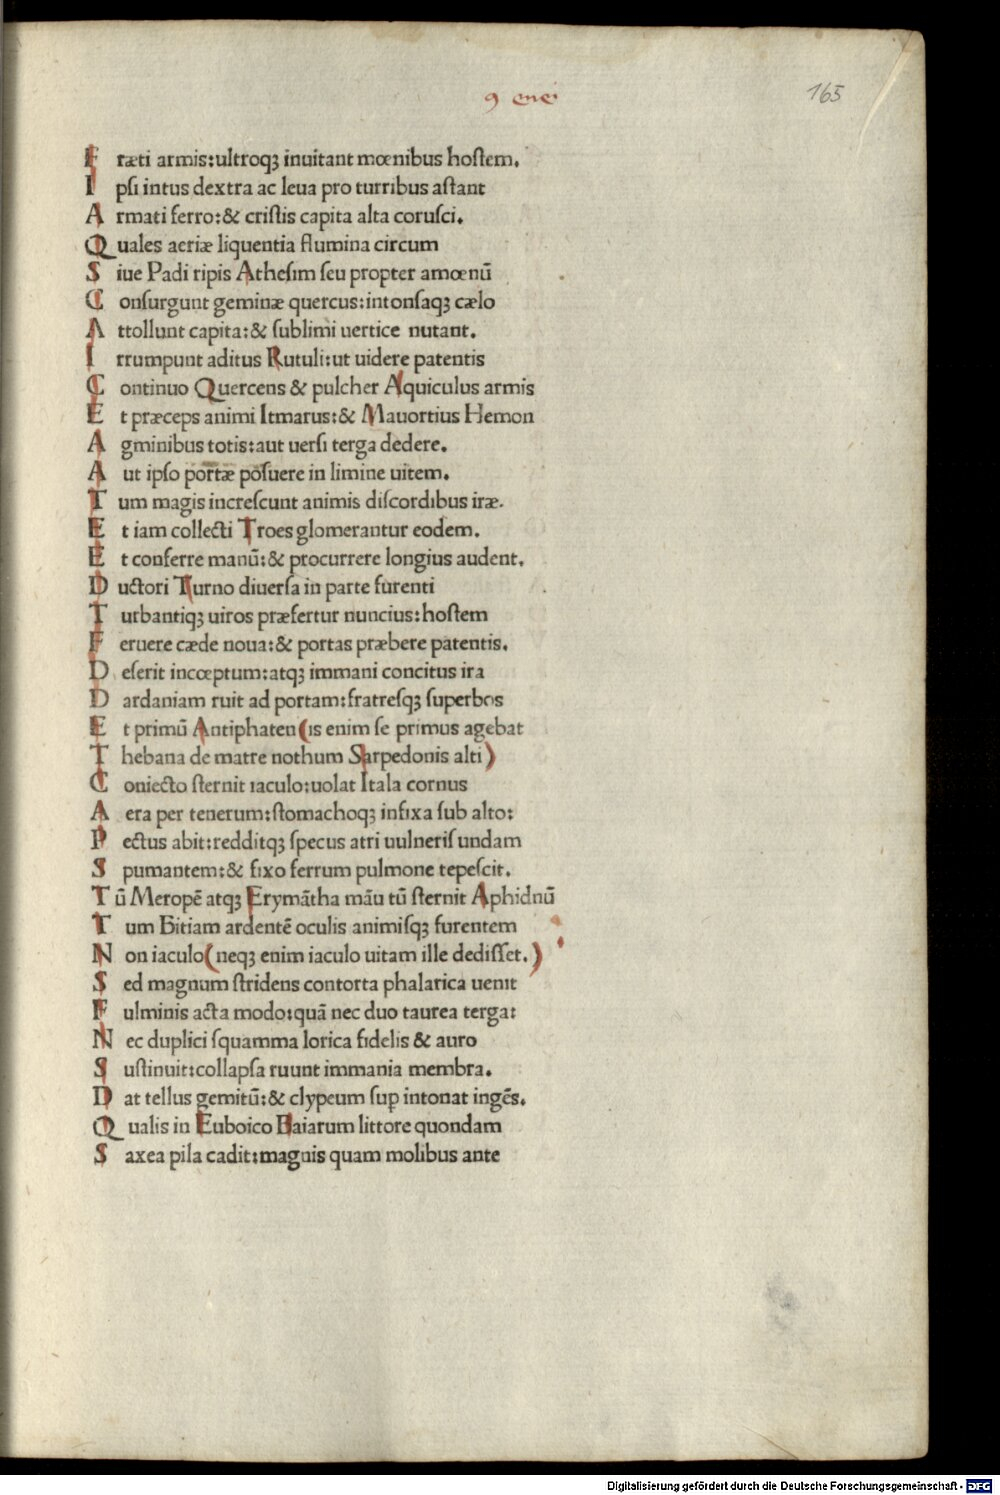 9 enei
165
F ræti armis:ultroqꝫ inuitant mœnibus hoſtem.
I pſi intus dextra ac leua pro turribus aſtant
A rmati ferro:& criſtis capita alta coruſci.
Q uales aeriæ liquentia flumina circum
S iue Padi ripis Atheſim ſeu propter amœnū
C onſurgunt geminæ quercus:intonſaqꝫ cælo
A ttollunt capita:& ſublimi uertice nutant.
I rrumpunt aditus Rutuli:ut uidere patentis
C ontinuo Quercens & pulcher Aquiculus armis
E t præceps animi Itmarus:& Mauortius Hemon
A gminibus totis:aut uerſi terga dedere.
A ut ipſo portæ poſuere in limine uitem.
T um magis increſcunt animis diſcordibus iræ.
E t iam collecti Troes glomerantur eodem.
E t conferre manū:& procurrere longius audent.
D uctori Turno diuerſa in parte furenti
T urbantiqꝫ uiros præfertur nuncius:hoſtem
F eruere cæde noua:& portas præbere patentis.
D eſerit incœptum:atqꝫ immani concitus ira
D ardaniam ruit ad portam:fratreſqꝫ ſuperbos
E t primū Antiphaten(is enim ſe primus agebat
T hebana de matre nothum Sarpedonis alti)
C oniecto ſternit iaculo:uolat Itala cornus
A era per tenerum:ſtomachoqꝫ infixa ſub alto:
P ectus abit:redditqꝫ ſpecus atri uulneriſ undam
S pumantem:& fixo ferrum pulmone tepeſcit.
T ū Meropē atqꝫ Erymātha māu tū ſternit Aphidnū
T um Bitiam ardentē oculis animiſqꝫ furentem
N on iaculo(neqꝫ enim iaculo uitam ille dediſſet.)
S ed magnum ſtridens contorta phalarica uenit
F ulminis acta modo:quā nec duo taurea terga:
N ec duplici ſquamma lorica fidelis & auro
S uſtinuit:collapſa ruunt immania membra.
D at tellus gemitū:& clypeum ſuꝑ intonat ingēs.
Q ualis in Euboico Baiarum littore quondam
S axea pila cadit:magnis quam molibus ante
Digitalisierung gefördert durch die Deutsche Forschungsgemeinschaft - DFG